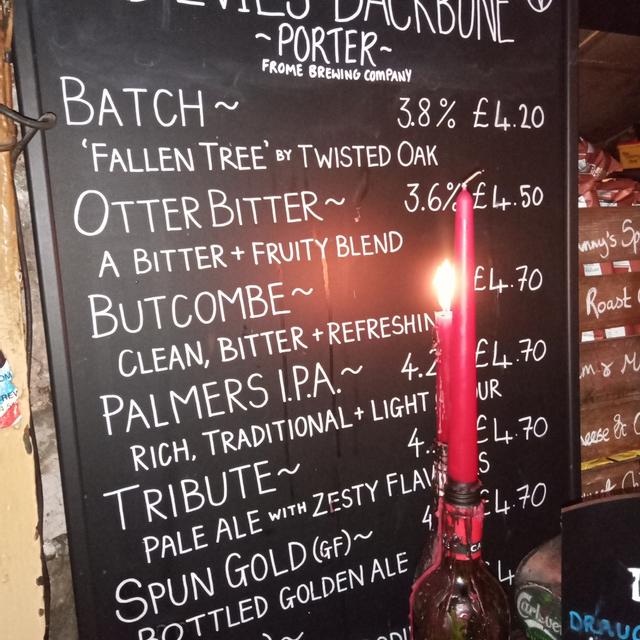 BACKBONE
~PORTER~
FROME BREWING COMPANY
BATCH~ 3.8% £4.20
'FALLEN TREE' BY TWISTED OAK
OTTER BITTER~ 3.6% £4.50
A BITTER + FRUITY BLEND
BUTCOMBE~ £4.70
CLEAN, BITTER + REFRESHIN
PALMERS I.P.A.~ 4.2 £4.70
RICH, TRADITIONAL + LIGHT
TRIBUTE~ 4. £4.70
PALE ALE WITH ZESTY
SPUN GOLD (GF)~ 4 £4.70
BOTTLED GOLDEN ALE
Roast
DRAUG